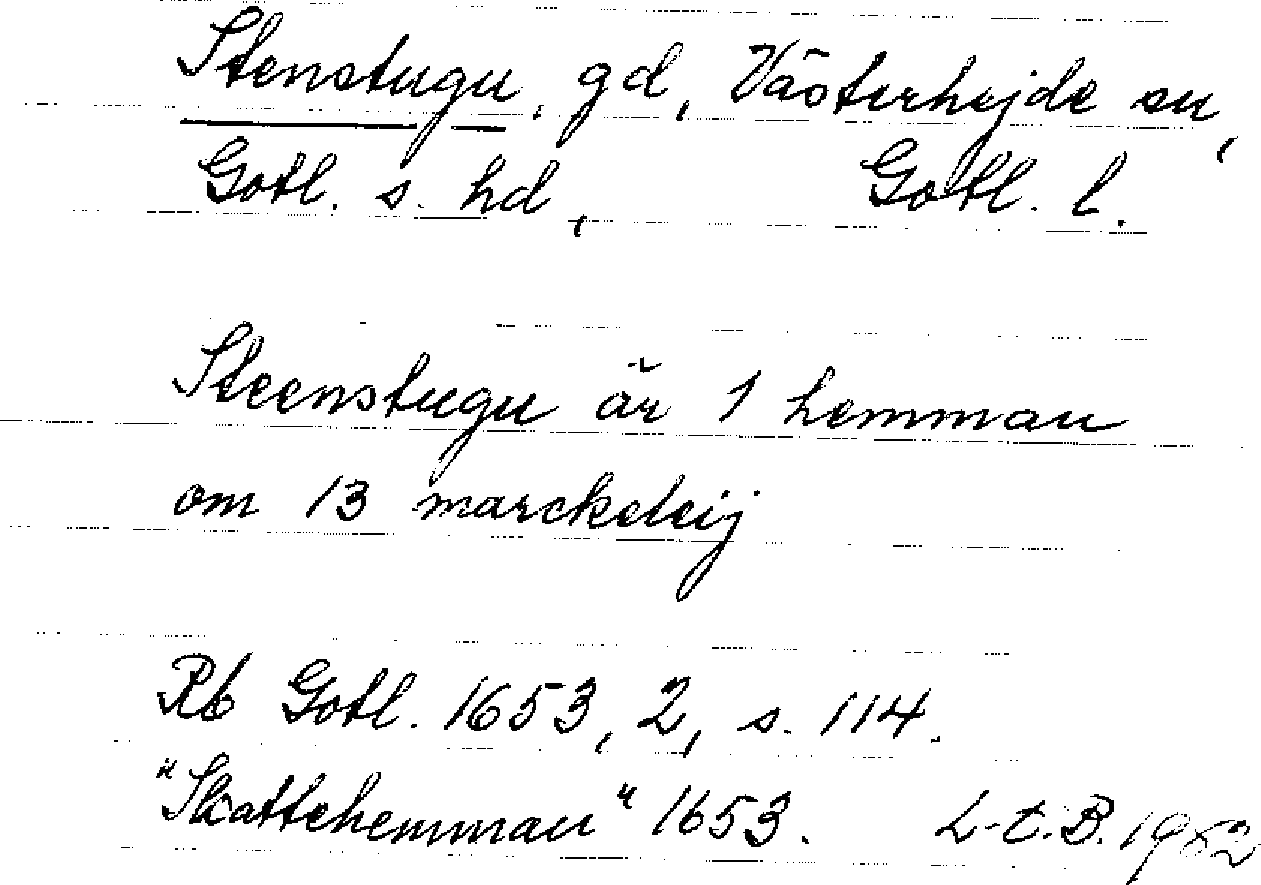 Stenstugu, gd, Västerhejde sn,
Gotl. s. hd, Gotl. l.
Steenstugu är 1 hemman
om 13 marckeleij
Rb Gotl. 1653, 2, s. 114.
"Skattehemman" 1653. L-E.B. 1982